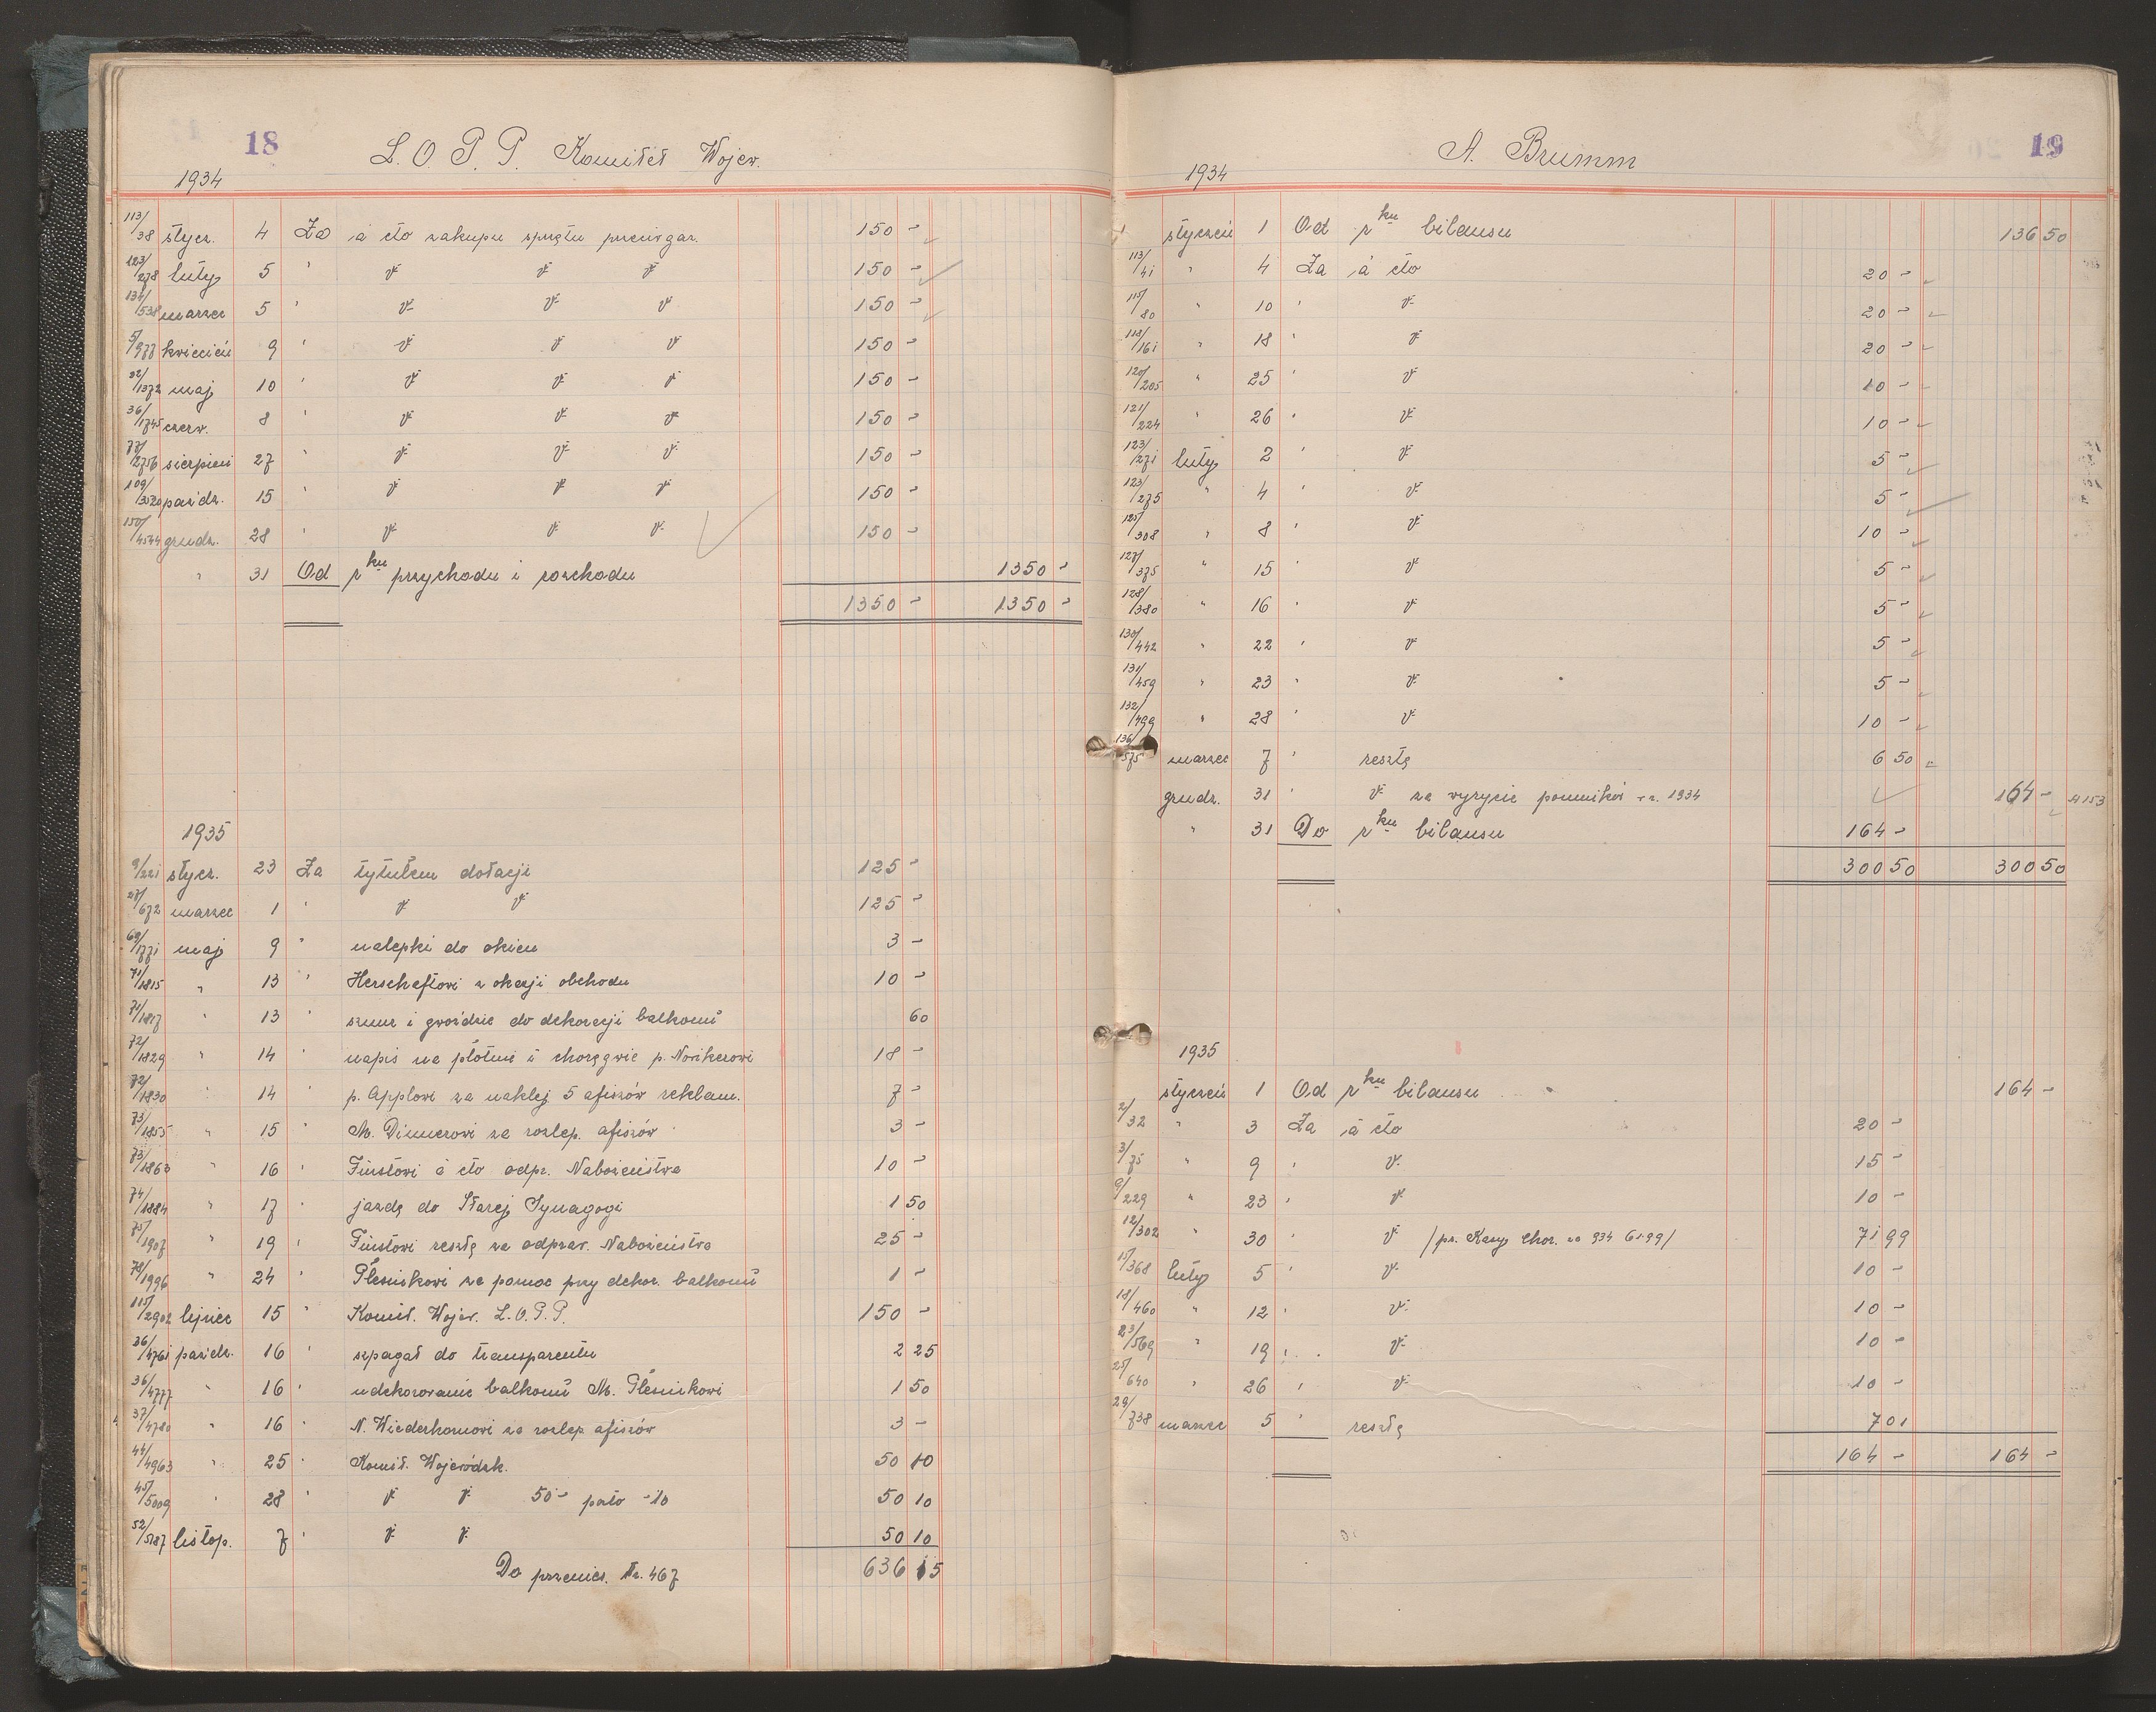 18
L. O. P. P. Komitet Wojew.
1934
113/38 stycz. 4 Za à cto zakupu sprzętu przeciwgaz. 150 -
123/278 luty 5 " " " " 150 -
134/538 marzec 5 " " " " 150 -
5/977 kwiecień 9 " " " " 150 -
22/1372 maj 10 " " " " 150 -
36/1745 czerw. 8 " " " " 150 -
77/2756 sierpień 27 " " " " 150 -
109/3520 paźdz. 15 " " " " 150 -
150/4544 grudz. 28 " " " " 150 -
" 31 Od rku przychodu i rozchodu 1350 -
1350 - 1350 -
1935
9/221 stycz. 23 Za tytułem dotacji 125 -
27/672 marzec 1 " " " 125 -
69/1771 maj 9 " nalepki do okien 3 -
71/1815 " 13 " Herscheftowi z okazji obchodu 10 -
71/1817 " 13 " sznur i gwoździe do dekoracji balkonu 60
72/1829 " 14 " napis na płótnie i chorągwie p. Novikerowi 18 -
72/1830 " 14 " p. Applowi za naklej 5 afiszów reklam. 7 -
73/1855 " 15 " M. Dimnerowi za rozlep. afiszów 3 -
73/1863 " 16 " Fürstowi à cto odpr. Nabożeństwa 10 -
74/1884 " 17 " jazdę do Starej Synagogi 1 50
75/1907 " 19 " Fürstowi resztę za odpraw. Nabożeństwa 25 -
78/1996 " 24 " Plesnikowi za pomoc przy dekor. balkonu 1 -
115/2902 lipiec 15 " Komit. Wojew. L. O. P. P. 150 -
36/4761 paźdz. 16 " szpagat do transparentu 2 25
36/4777 " 16 " udekorowanie balkonu M. Plesnikowi 1 50
37/4780 " 16 " N. Wiederhornowi za rozlep. afiszów 3 -
44/4963 " 25 " Komit. Wojewódzk. 50 10
45/5009 " 28 " " " 50 - pato - 10 50 10
52/5187 listop. 7 " " " 50 10
Do przenies. str. 467 636 15
19
A. Brumm
1934
1 styczeń 1 Od rku bilansu 136 50
113/41 " 4 Za à cto 20 -
115/80 " 10 " " 20 -
118/161 " 18 " " 20 -
120/205 " 25 " " 10 -
121/224 " 26 " " 10 -
123/271 luty 2 " " 5 -
123/275 " 4 " " 5 -
125/308 " 8 " " 10 -
127/375 " 15 " " 5 -
128/380 " 16 " " 5 -
130/442 " 22 " " 5 -
131/459 " 23 " " 5 -
132/499 " 28 " " 10 -
136/575 marzec 7 " resztę 6 50
grudz. 31 " " za wyrycie pomników w r. 1934 164 - A 153
" 31 Do rku bilansu 164 -
300 50 300 50
1935
styczeń 1 Od rku bilansu 164 -
2/32 " 3 Za à cto 20 -
3/75 " 9 " " 15 -
9/229 " 23 " " 10 -
12/302 " 30 " " /pr. Kasy Chor. za 934 61.99/ 71 99
15/368 luty 5 " " 10 -
18/460 " 12 " " 10 -
23/569 " 19 " " 10 -
25/640 " 26 " " 10 -
29/738 marzec 5 " resztę 7 01
164 - 164 -